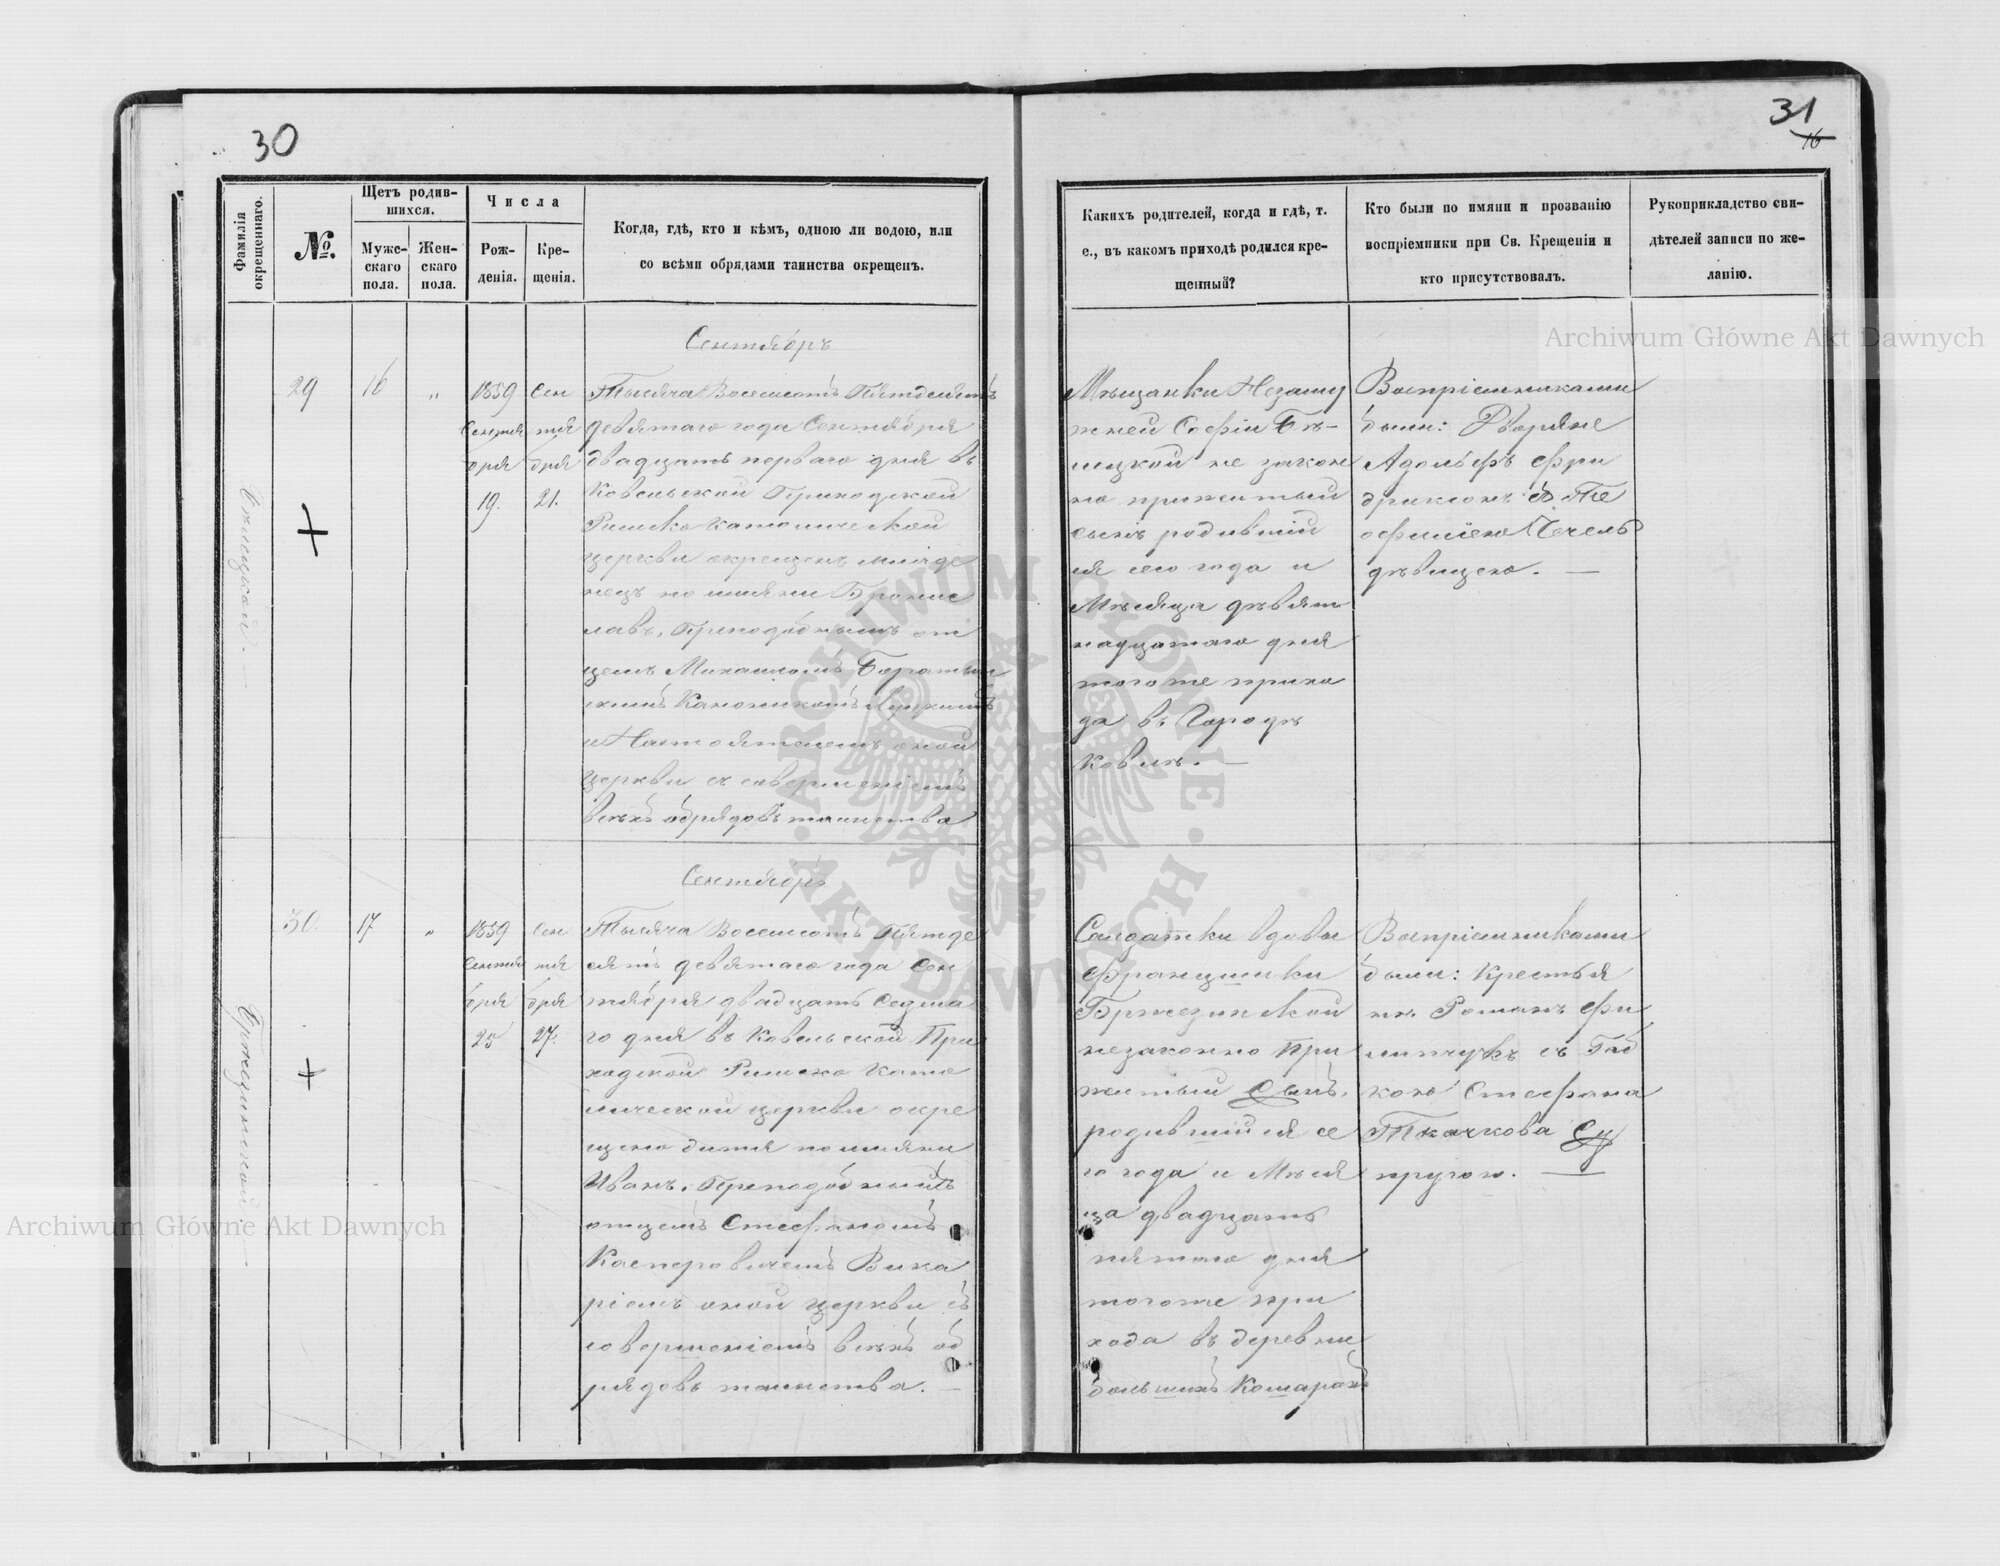 30
31
16
Фамилія окрещеннаго.
№.
Щетъ родив-
шихся.
Муже-
скаго
пола.
Жен-
скаго
пола.
Числа
Рож-
денія.
Кре-
щенія.
Когда, гдѣ, кто и кѣмъ, одною ли водою, или
со всѣми обрядами таинства окрещенъ.
Какихъ родителей, когда и гдѣ, т.
е., въ какомъ приходѣ родился кре-
щенный?
Кто были по имяни и прозванію
воспріемники при Св. Крещеніи и
кто присутствовалъ.
Рукоприкладство сви-
дѣтелей записи по же-
ланію.
Сентябръ
29
16
"
1859
Сентя
бря
19.
Сен
тя
бря
21.
Тысяча Восемсотъ Пятдесятъ
девятаго года Сентября
двадцать перваго дня въ
Ковельской Приходской
Римско Католической
церкви окрещенъ младе
нецъ по имяни Бронис
лавъ, Преподобнымъ от
цемъ Михаиломъ
скимъ Каноникомъ Луцкимъ
и Настоятелемъ оной
церкви съ совершеніемъ
всѣхъ обрядовъ таинства
Мѣщанки Незаму
жней Софіи Бѣ-
лецкой не закон
но прижитый
сынъ родивший
ся сего года и
Мѣсяца девят
надцатаго дня
тогоже прихо
да въ Городѣ
Ковелѣ. —
Воспріемниками
были: Дворяне
Адольфъ Фри
дриксонъ съ Те
офилією Чечель
дѣвицею. —
Сентябръ
30.
17
"
1859
Сентя
бря
25
Сен
тя
бря
27.
Тысяча Восемсотъ Пятде
сятъ девятаго года Сен
тября двадцать седма
го дня въ Ковельской При
ходской Римско Като
лической церкви окре
щено дитя по имяни
Иванъ, Преподобнымъ
отцемъ Стефаномъ
Касперовичемъ Вика
ріемъ оной церкви съ
совершеніемъ всѣхъ об
рядовъ таинства. —
Салдатки вдовы
Францишки
Бржезинской
незаконно При
житый Сынъ,
родившийся се
го года и Мѣся
ца двадцать
пятаго дня
тогоже при
хода въ деревни
большихъ Кошарахъ
Воспріемниками
были: Крестья
нъ Романъ Фи
липчукъ съ
кою Стефана
Ткачкова Су
пругою. —
Бржезинской —
Archiwum Główne Akt Dawnych
Archiwum Główne Akt Dawnych
ARCHIWUM GŁÓWNE · AKT DAWNYCH ·